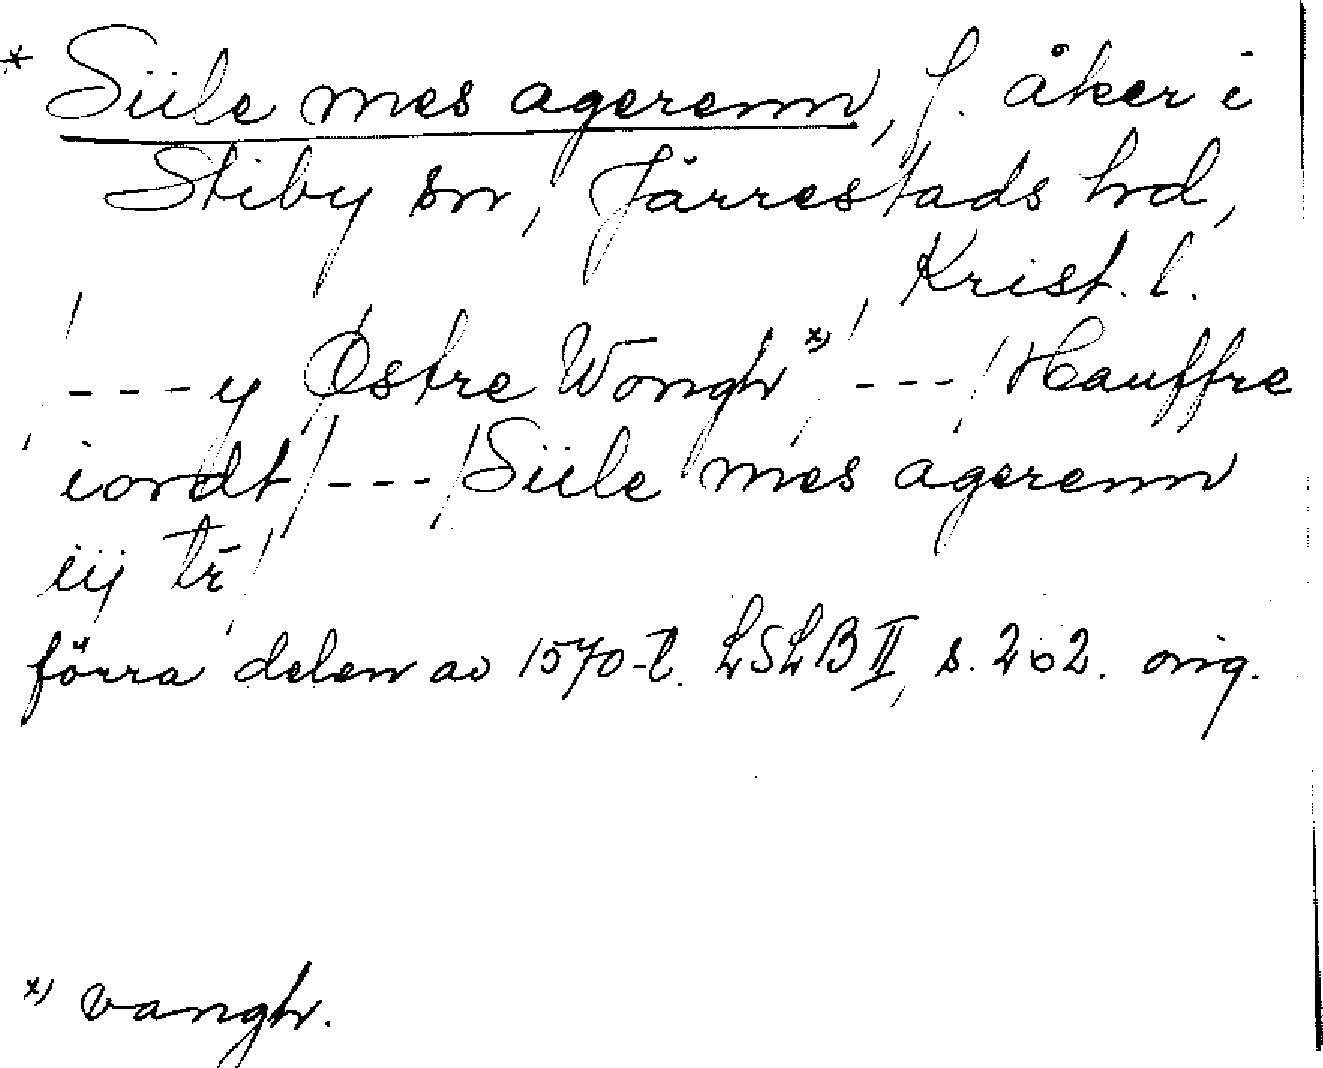 * Siile mes agerenn, f. åker i
Stiby sn, Järrestads hd,
Krist. l.
/ - - - y Østre Wongh *) / - - - / Hauffre
iordt / - - - / Siile mes agerenn
iij tr̄ /
förra delen av 1570-t. LSLB II, s. 262. orig.
*) vangh.